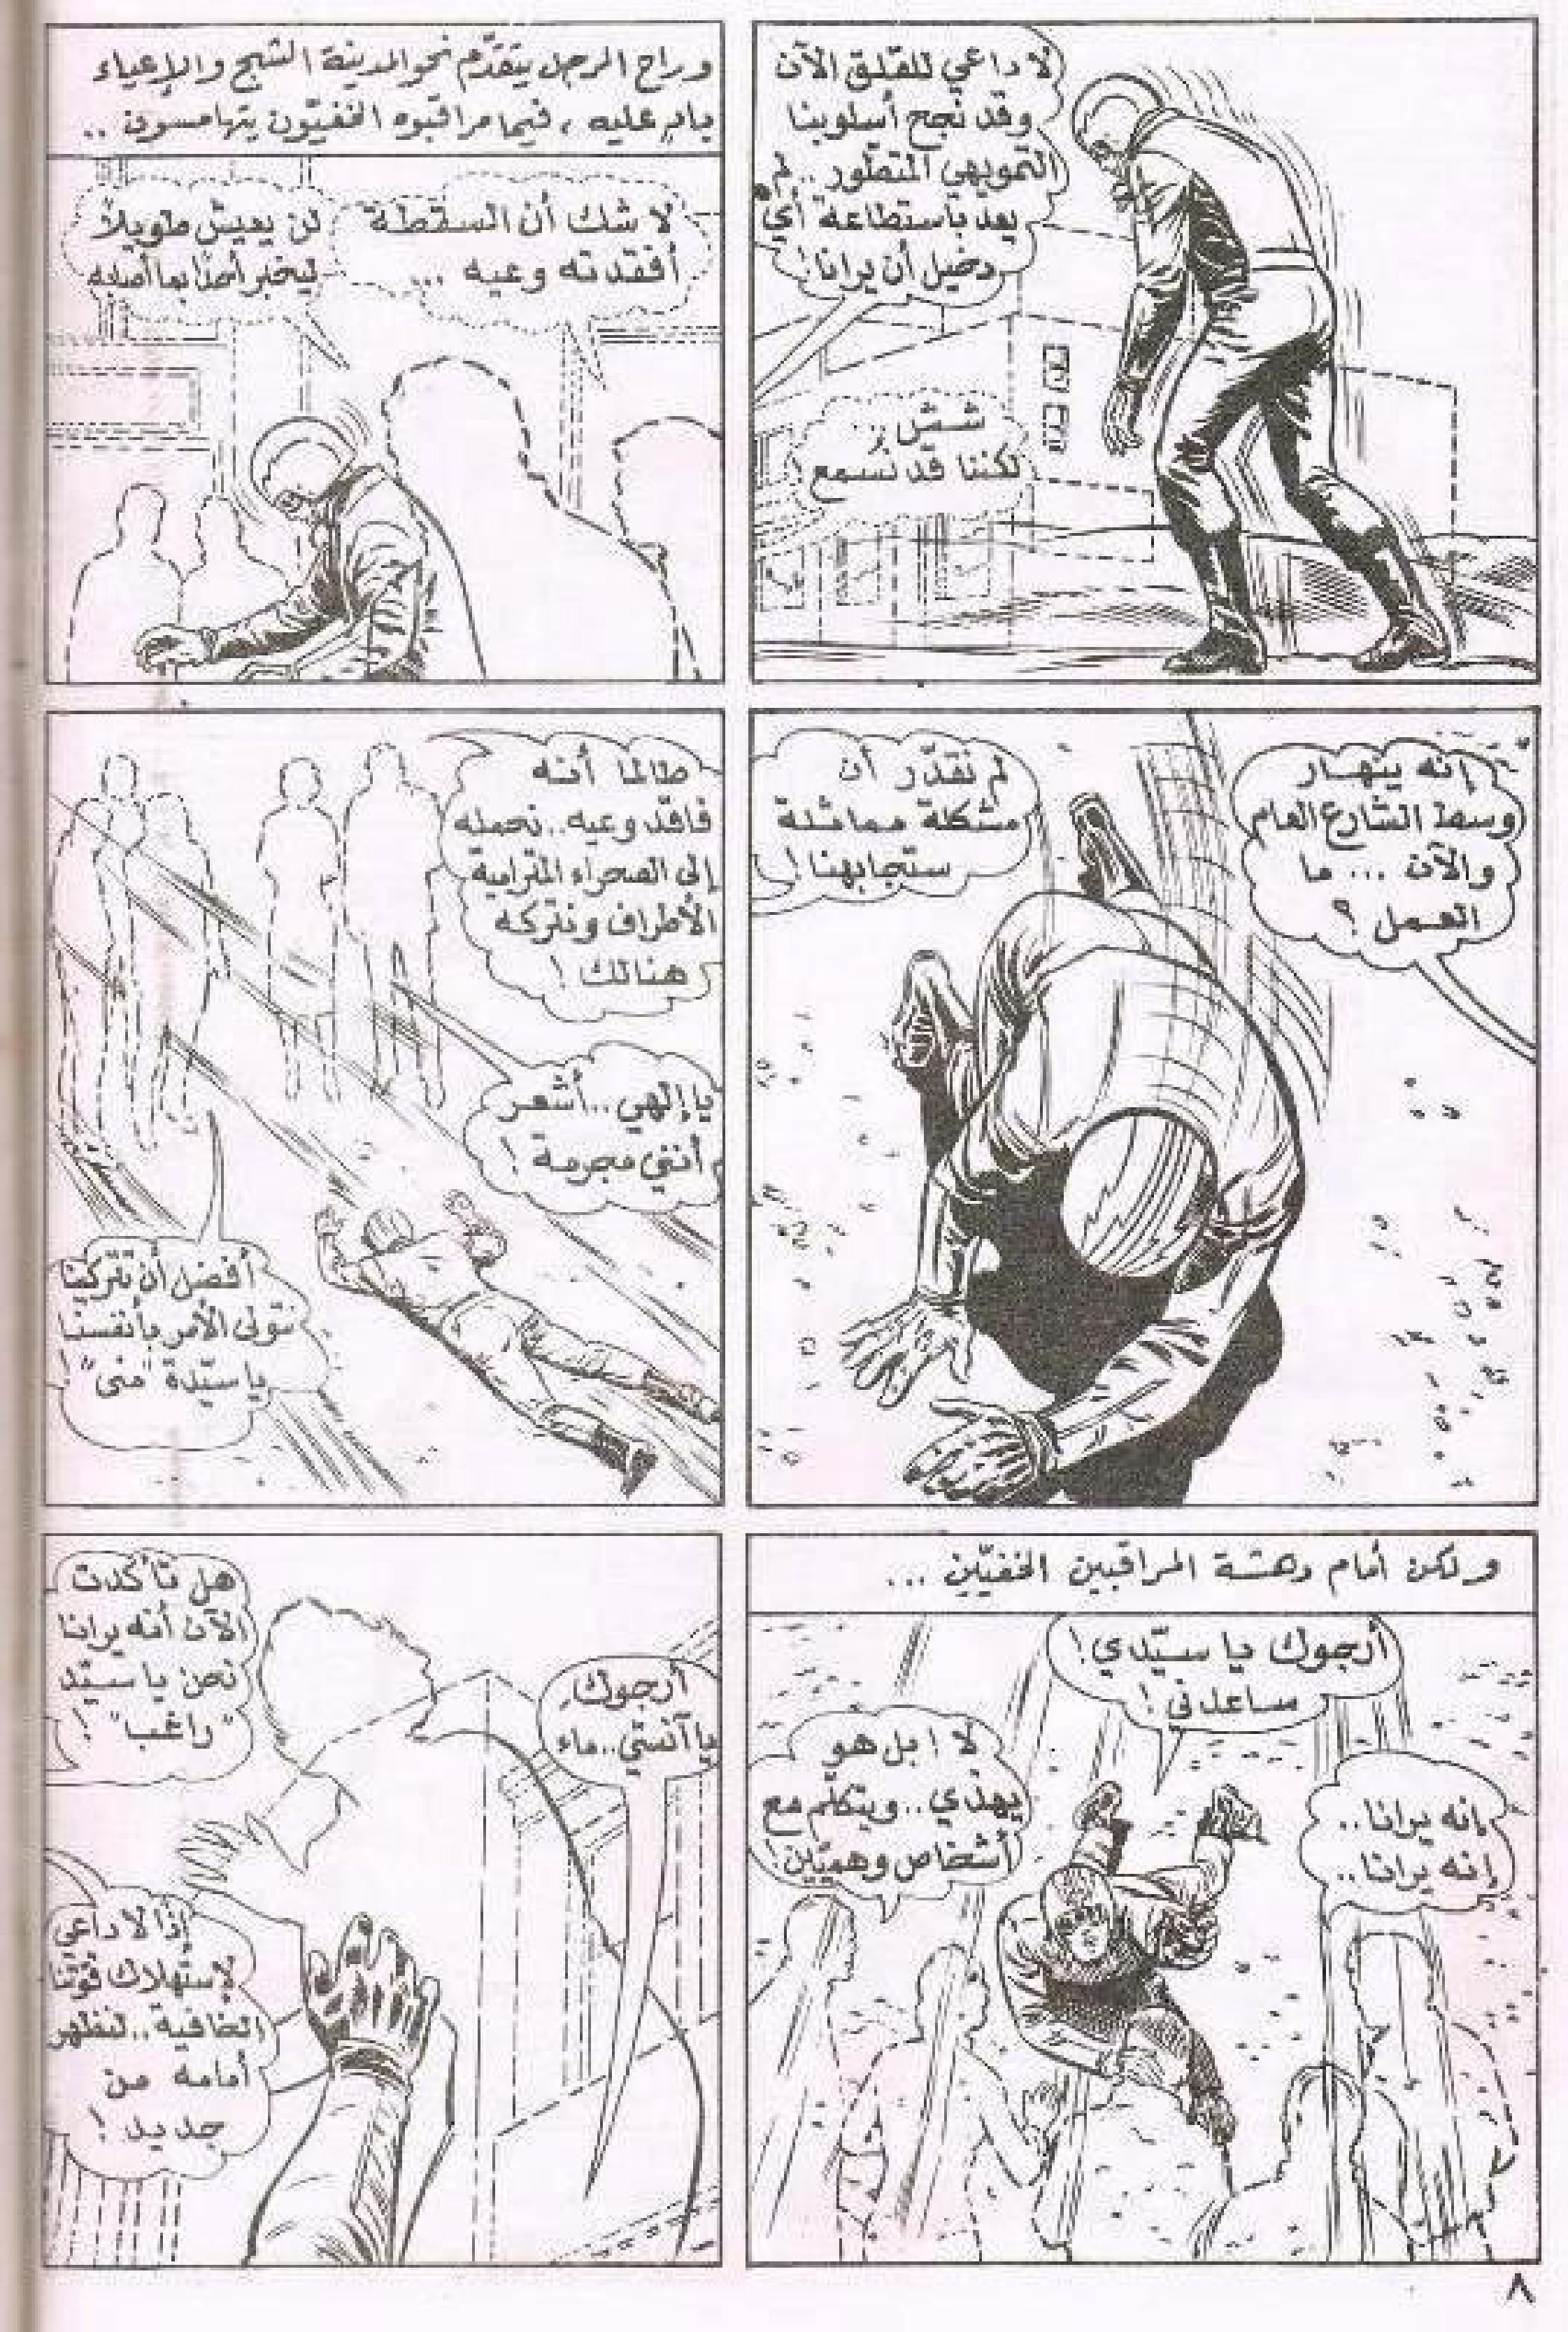 لا داعي للقلق الآن
وقد نجح أسلوبنا
التمويهي المتطور .. لم
يعد باستطاعة أي
دخيل أن يرانا!
شششش..
لكننا قد نسمع
وراح الرجل يتقدّم نحو المدينة الشبح والإعياء
بادٍ عليه ، فيما مراقبوه الخفيّون يتهامسون ..
لا شك أن السقطة
أفقدته وعيه ...
لن يعيش طويلاً
ليخبر أحدًا بما أصابه
إنه ينهار
وسط الشارع العام
والآن ... ما
العمل ؟
لم نقدّر أن
مشكلة مماثلة
ستجابهنا !
طالما أنه
فاقد وعيه .. نحمله
إلى الصحراء المترامية
الأطراف ونتركه
هنالك !
يا إلهي .. أشعر
أنني مجرمة !
أفضل أن تتركينا
نتولى الأمر بأنفسنا
يا سيّدة "منى" !
ولكن أمام دهشة المراقبين الخفيّين ...
أرجوك يا سيّدي !
ساعدني !
إنه يرانا ..
إنه يرانا ..
لا ! بل هو
يهذي .. ويتكلّم مع
أشخاص وهميّين !
أرجوك
يا آنستي .. ماء
هل تأكدت
الآن أنه يرانا
نحن يا سيّد
"راغب" !
إذًا لا داعي
لإستهلاك قوّتنا
الخافية .. لنظهر
أمامه من
جديد !
٨